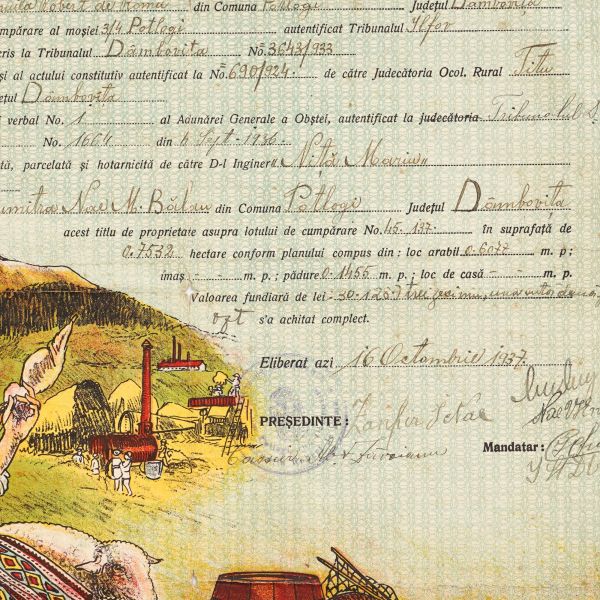 de Roma din Comuna Potlogi Județul Dâmbovita
mpărare al moșiei 3/4 Potlogi autentificat Tribunalul Ilfov
cris la Tribunalul Dâmbovita No. 3643/933
și al actului constitutiv autentificat la No. 690/924 de către Judecătoria Ocol. Rural Titu
ețul Dâmbovita
verbal No. 1 al Adunărei Generale a Obștei, autentificat la judecătoria Tribunalul
No. 1664 din 4 Sept. 1936
tă, parcelată și hotarnicită de către D-l Inginer Niță Marin
umitra Nae M. Bălau din Comuna Potlogi Județul Dâmbovița
acest titlu de proprietate asupra lotului de cumpărare No. 45-137 în suprafață de
0.7532 hectare conform planului compus din: loc arabil 0.6077 m. p;
imaș - - m. p.; pădure 0.1455 m. p.; loc de casă - - m. p.
Valoarea funduară de lei 30.128
opt s'a achitat complect.
Eliberat azi 16 Octombrie 1937.
PREȘEDINTE:
Mandatar: